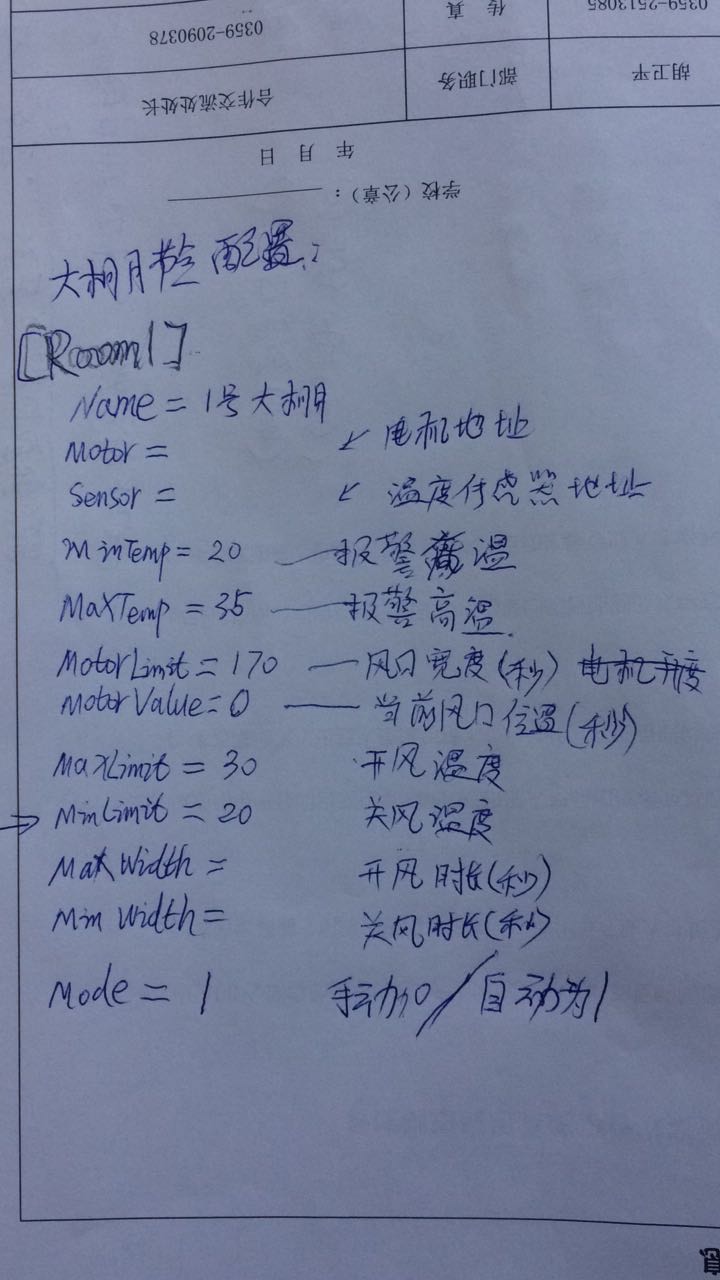 0359-2513085
传 真
0359-2090378
胡卫平
部门职务
合作交流处处长
年 月 日
学校（公章）：
大棚 配置：
[Room1]
Name = 1号大棚
Motor = ↙ 电机地址
Sensor = ↙ 温度传感器地址
MinTemp = 20 —— 报警 温
MaxTemp = 35 —— 报警高温
MotorLimit = 170 —— 风口宽度(秒) 电机开度
MotorValue = 0 —— 当前风口位置(秒)
MaxLimit = 30 开风温度
→ MinLimit = 20 关风温度
MaxWidth = 开风时长(秒)
MinWidth = 关风时长(秒)
Mode = 1 手动为0 / 自动为1